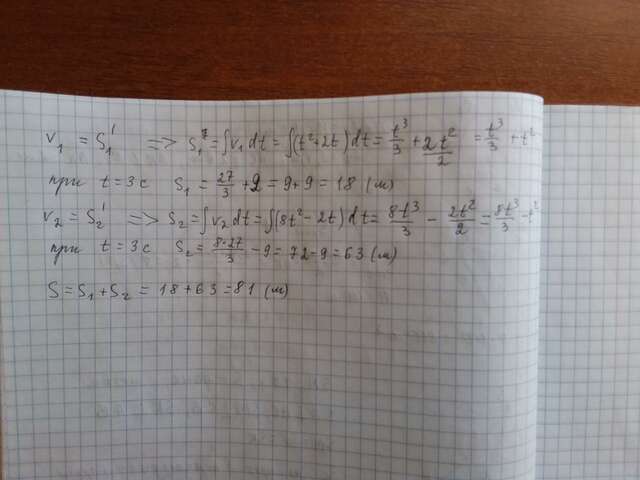 v₁ = S₁' => S₁ = ∫v₁dt = ∫(t²+2t)dt = t³/3 + 2t²/2 = t³/3 + t²
при t = 3 с S₁ = 27/3 + 9 = 9 + 9 = 18 (м)
v₂ = S₂' => S₂ = ∫v₂dt = ∫(8t² - 2t)dt = 8t³/3 - 2t²/2 = 8t³/3 - t²
при t = 3 с S₂ = 8·27/3 - 9 = 72 - 9 = 63 (м)
S = S₁ + S₂ = 18 + 63 = 81 (м)